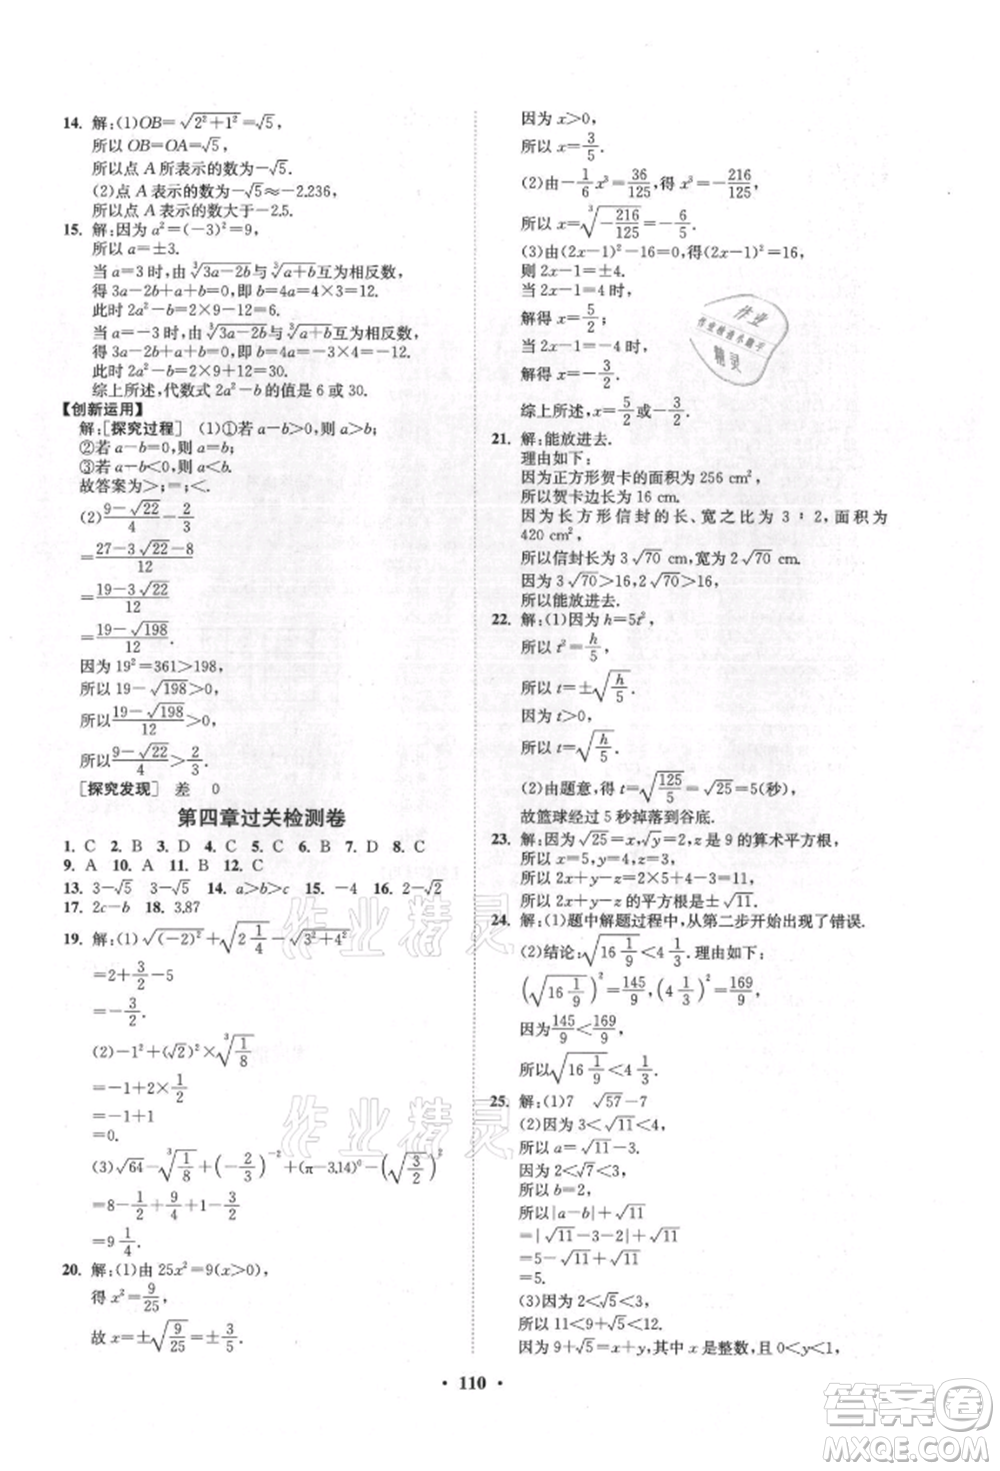 14. 解:(1)OB=√(2²+1²)=√5,
所以 OB=OA=√5,
所以点 A 所表示的数为-√5.
(2)点 A 表示的数为-√5≈-2.236,
所以点 A 表示的数大于-2.5.
15. 解:因为 a²=(-3)²=9,
所以 a=±3.
当 a=3 时,由∛(3a-2b)与∛(a+b)互为相反数,
得 3a-2b+a+b=0,所以 b=12.
此时 2a²-b=2×9-12=6.
当 a=-3 时,由∛(3a-2b)与∛(a+b)互为相反数,
得 3a-2b+a+b=0,所以 b=-12.
此时 2a²-b=2×9+12=30.
综上所述,代数式 2a²-b 的值是 6 或 30.
【创新运用】
解:[探究过程] (1)①若 a-b>0,则 a>b;
②若 a-b=0,则 a=b;
③若 a-b<0,则 a<b.
故答案为>;=;<.
(2)(9-√22)/4-2/3
=(27-3√22-8)/12
=(19-3√22)/12
=(19-√198)/12.
因为 19²=361>198,
所以 19-√198>0,
所以(19-√198)/12>0,
所以(9-√22)/4>2/3.
[探究发现] 差 0
第四章过关检测卷
1. C 2. B 3. D 4. C 5. C 6. B 7. D 8. C
9. A 10. A 11. B 12. C
13. 3-√5 √5-3 14. a>b>c 15. -4 16. 2-√2
17. 2c-b 18. 3,87
19. 解:(1)√(-2)²+√(2 1/4)-√(3²+4²)
=2+3/2-5
=-3/2.
(2)-1²+(√2)²×∛(1/8)
=-1+2×1/2
=-1+1
=0.
(3)√64-∛(1/8)+(-2/3)⁻²+(π-3.14)⁰-(√(3/2))²
=8-1/2+9/4+1-3/2
=9 1/4.
20. 解:(1)由 25x²=9(x>0),
得 x²=9/25,
故 x=±√(9/25)=±3/5.
因为 x>0,
所以 x=3/5.
(2)由-1/6x³=36/125,得 x³=-216/125,
所以 x=∛(-216/125)=-6/5.
(3)由(2x-1)²-16=0,得(2x-1)²=16,
则 2x-1=±4.
当 2x-1=4 时,
解得 x=5/2;
当 2x-1=-4 时,
解得 x=-3/2.
综上所述,x=5/2或 x=-3/2.
21. 解:能放进去.
理由如下:
因为正方形贺卡的面积为 256 cm²,
所以贺卡边长为 16 cm.
因为长方形信封的长、宽之比为 3∶2,面积为
420 cm²,
所以信封长为 3√70 cm,宽为 2√70 cm.
因为 3√70>16,2√70>16,
所以能放进去.
22. 解:(1)因为 h=5t²,
所以 t²=h/5,
所以 t=±√(h/5).
因为 t>0,
所以 t=√(h/5).
(2)由题意,得 t=√(125/5)=√25=5(秒),
故篮球经过 5 秒掉落到谷底.
23. 解:因为√25=x,√y=2,z 是 9 的算术平方根,
所以 x=5,y=4,z=3,
所以 2x+y-z=10+4-3=11,
所以 2x+y-z 的平方根是±√11.
24. 解:(1)题中解题过程中,从第二步开始出现了错误.
(2)结论:√(16 1/9)<4 1/3.理由如下:
(√(16 1/9))²=145/9,(4 1/3)²=169/9.
因为145/9<169/9,
所以√(16 1/9)<4 1/3.
25. 解:(1)7 √57-7
(2)因为 3<√11<4,
所以 a=√11-3.
因为 2<√7<3,
所以 b=2,
所以|a-b|+√11
=|√11-3-2|+√11
=5-√11+√11
=5.
(3)因为 2<√5<3,
所以 11<9+√5<12.
因为 9+√5=x+y,其中 x 是整数,且 0<y<1,
• 110 •
作业
作业检查小助手
精灵
作业精灵
作业精灵
答案卷
MXQE.COM